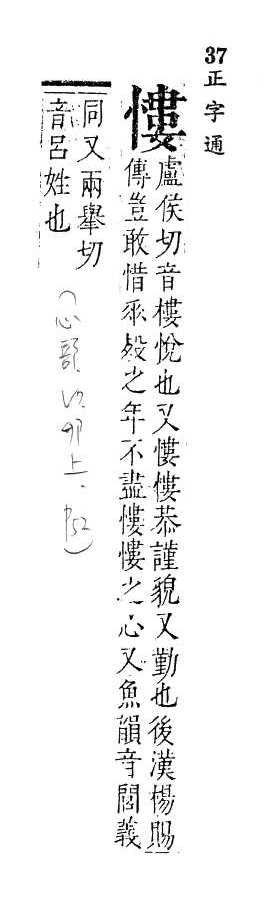 37正字通
慺
盧侯切音樓悅也又慺慺恭謹貌又勤也後漢楊賜
傳豈敢惜垂歿之年不盡慺慺之心又魚韻音閭義
同又兩舉切
音呂姓也
(心部 卯上. P52)